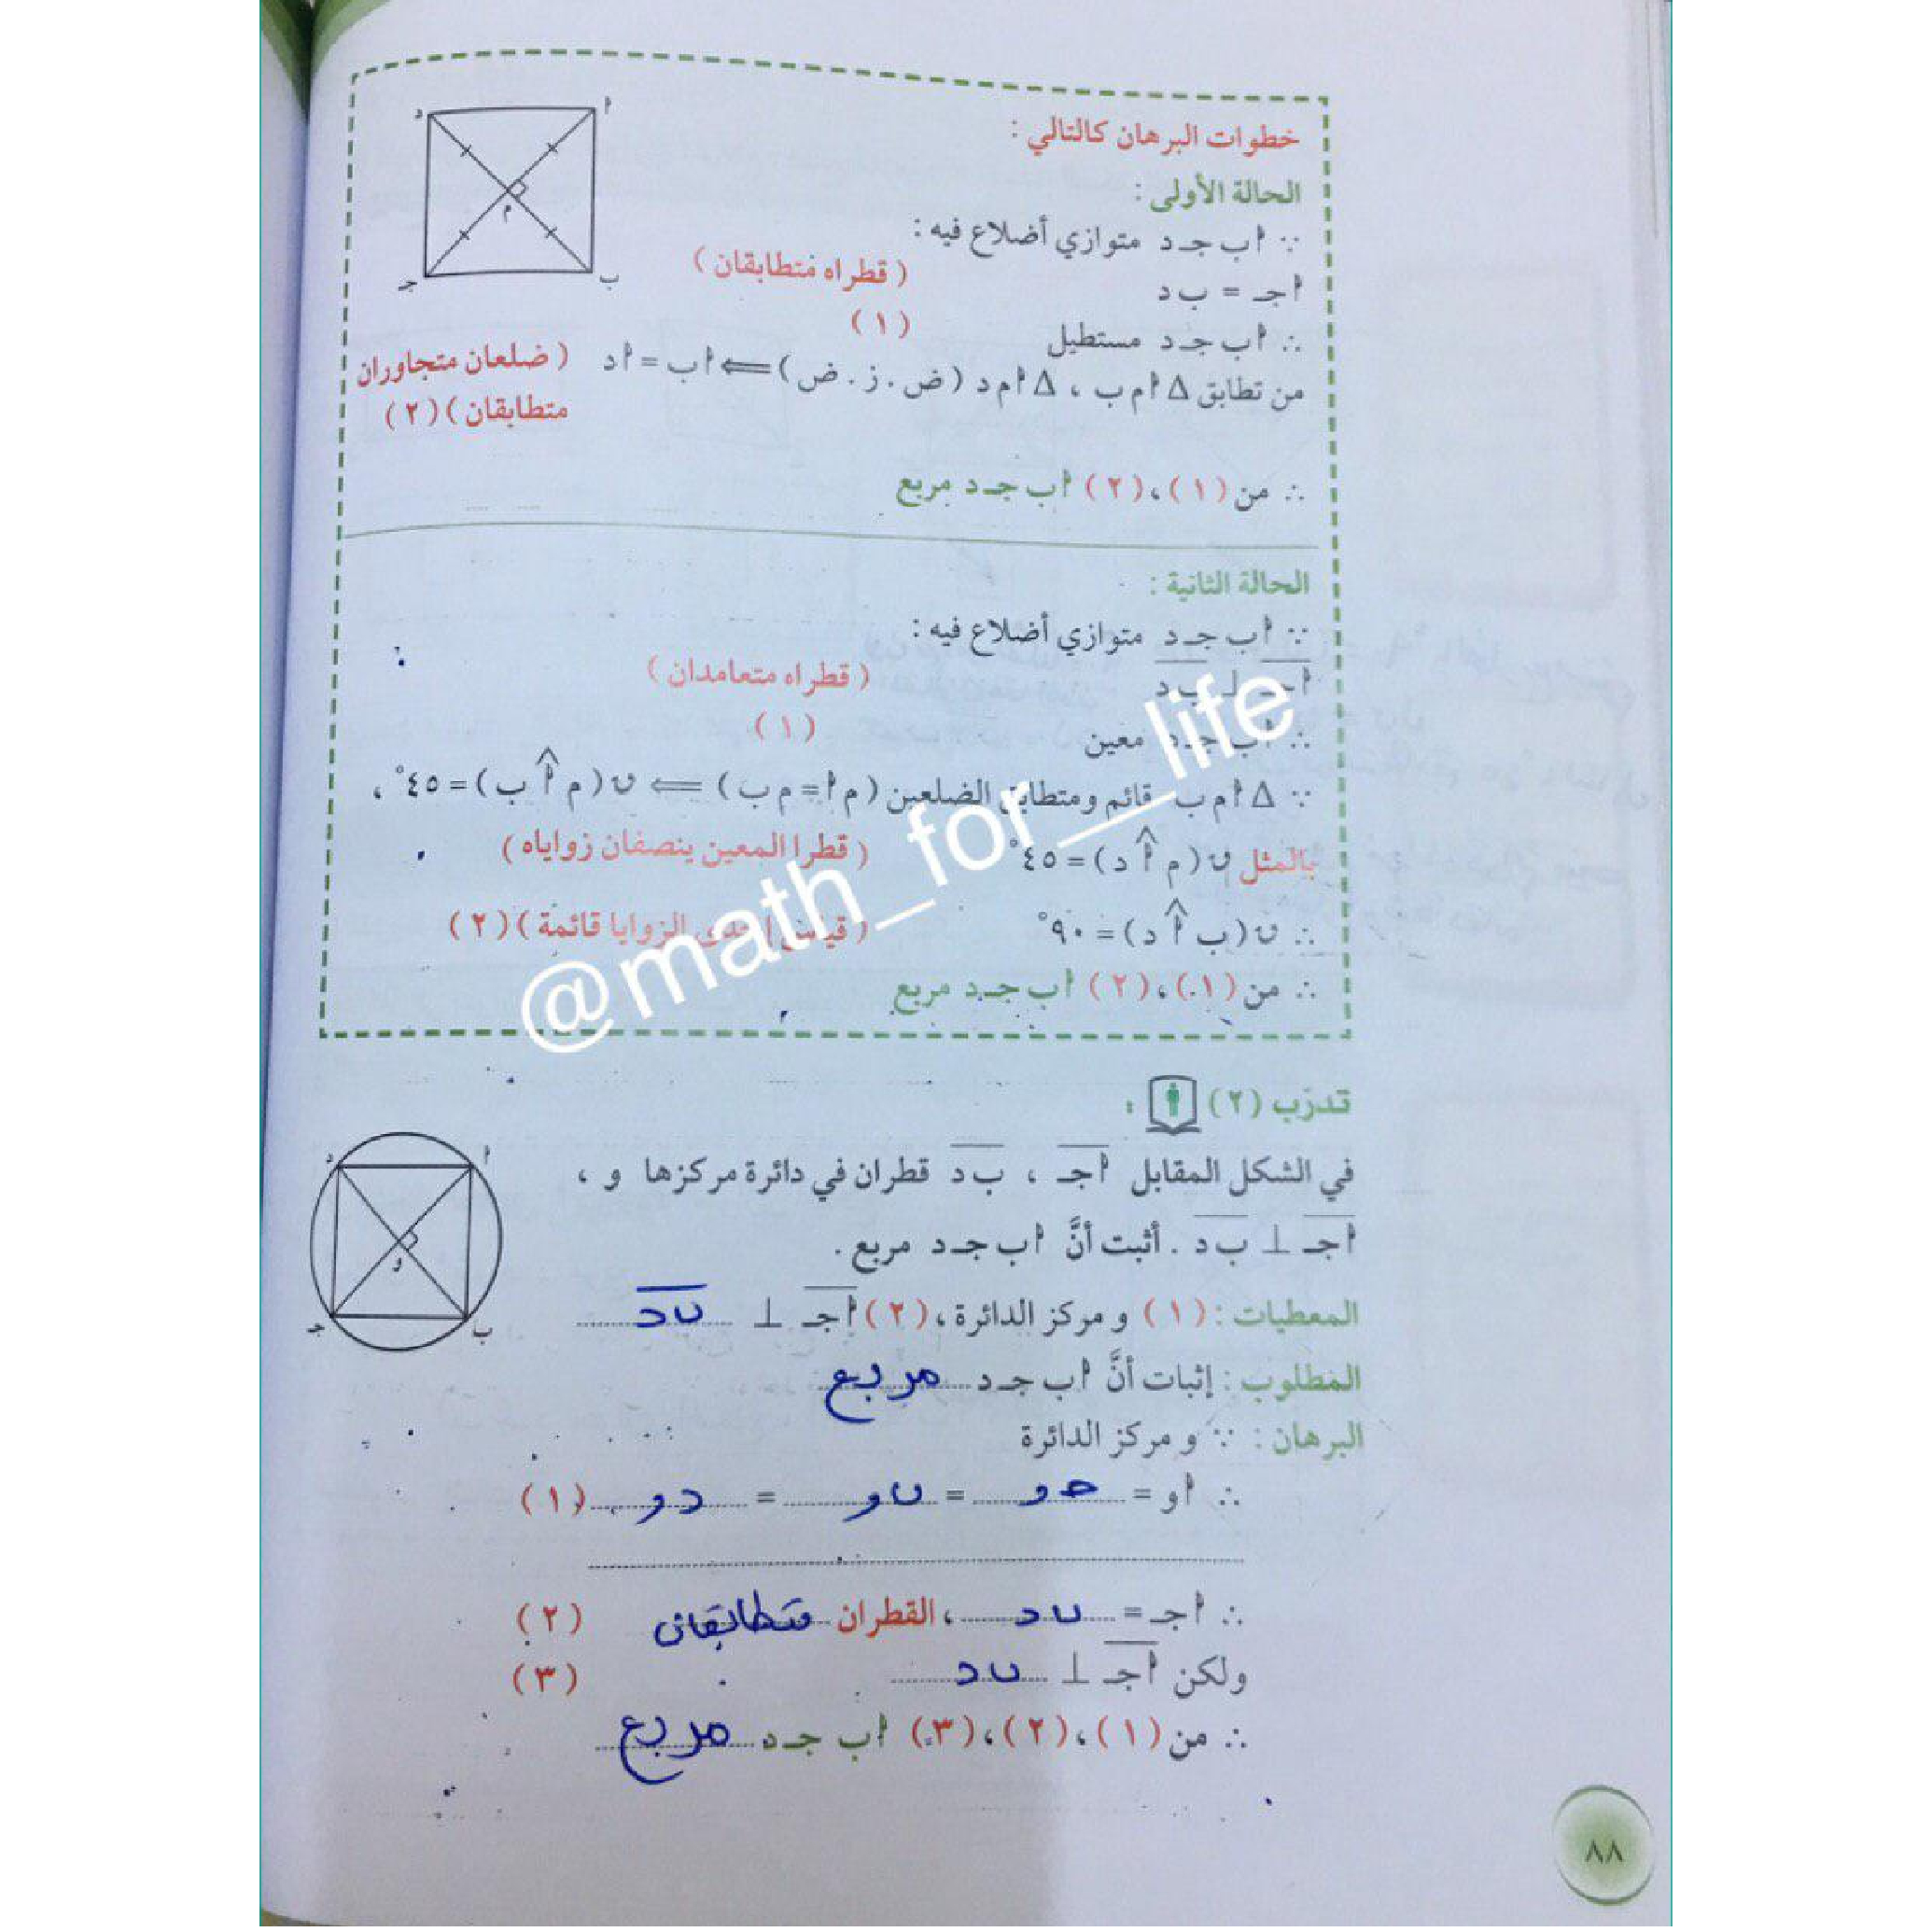 خطوات البرهان كالتالي :
الحالة الأولى :
∵ ا ب جـ د متوازي أضلاع فيه :
ا جـ = ب د ( قطراه متطابقان )
∴ ا ب جـ د مستطيل ( ١ )
من تطابق Δ ا م ب ، Δ ا م د ( ض . ز . ض ) ⟸ ا ب = ا د ( ضلعان متجاوران
متطابقان ) ( ٢ )
∴ من ( ١ ) ، ( ٢ ) ا ب جـ د مربع
د ا
م
جـ ب
الحالة الثانية :
∵ ا ب جـ د متوازي أضلاع فيه :
ا جـ ⊥ ب د ( قطراه متعامدان )
∴ ا ب جـ د معين ( ١ )
∵ Δ ا م ب قائم ومتطابق الضلعين ( م ا = م ب ) ⟸ ن ( م اَ ب ) = ٤٥° ،
بالمثل ن ( م اَ د ) = ٤٥° ( قطرا المعين ينصفان زواياه )
∴ ن ( ب اَ د ) = ٩٠° ( قياس إحدى الزوايا قائمة ) ( ٢ )
∴ من ( ١ ) ، ( ٢ ) ا ب جـ د مربع
@math_for__life
تدرّب ( ٢ ) :
في الشكل المقابل ا جـ ، ب د قطران في دائرة مركزها و ،
ا جـ ⊥ ب د . أثبت أنَّ ا ب جـ د مربع .
د ا
و
جـ ب
المعطيات : ( ١ ) و مركز الدائرة ، ( ٢ ) ا جـ ⊥ ب د
المطلوب : إثبات أنَّ ا ب جـ د مربع
البرهان : ∵ و مركز الدائرة
∴ ا و = جـ و = ب و = د و ( ١ )
∴ ا جـ = ب د ، القطران متطابقان ( ٢ )
ولكن ا جـ ⊥ ب د ( ٣ )
∴ من ( ١ ) ، ( ٢ ) ، ( ٣ ) ا ب جـ د مربع
٨٨